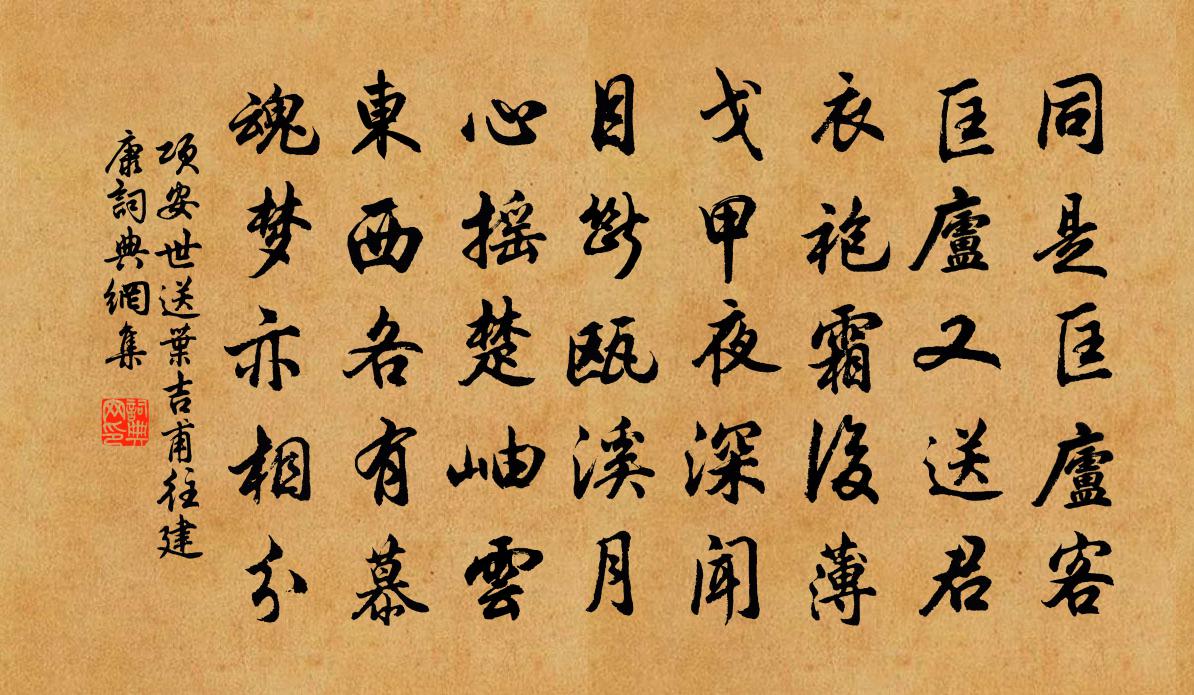 同是匡廬客
匡廬又送君
衣袍霜後薄
戈甲夜深聞
目斷甌溪月
心摇楚岫雲
東西各有慕
魂梦亦相分
项安世送葉吉甫往建
康詞典網集
詞典
网印